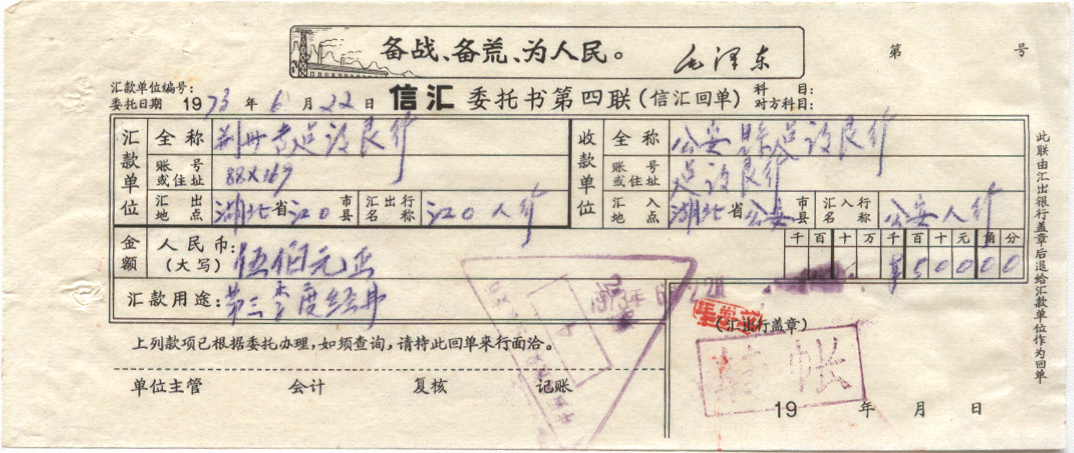 备战、备荒、为人民。 毛泽东
第 号
汇款单位编号:
委托日期 1973年6月22日 信汇 委托书第四联(信汇回单) 科 目:
对方科目:
汇款单位 全称 收款单位 全称 公安县
账号或住址 88×169 账号或住址
汇出地点 湖北省江0市县 汇出行名称 江0人行 汇入地点 湖北省公安市县 汇入行名称 公安人行
金额 人民币:(大写) 伍佰元正 千百十万千百十元角分 ¥50000
汇款用途: 第三季度经费
(汇出行盖章)
转帐
上列款项已根据委托办理,如须查询,请持此回单来行面洽。
单位主管 会计 复核 记账
19 年 月 日
此联由汇出银行盖章后退给汇款单位作为回单